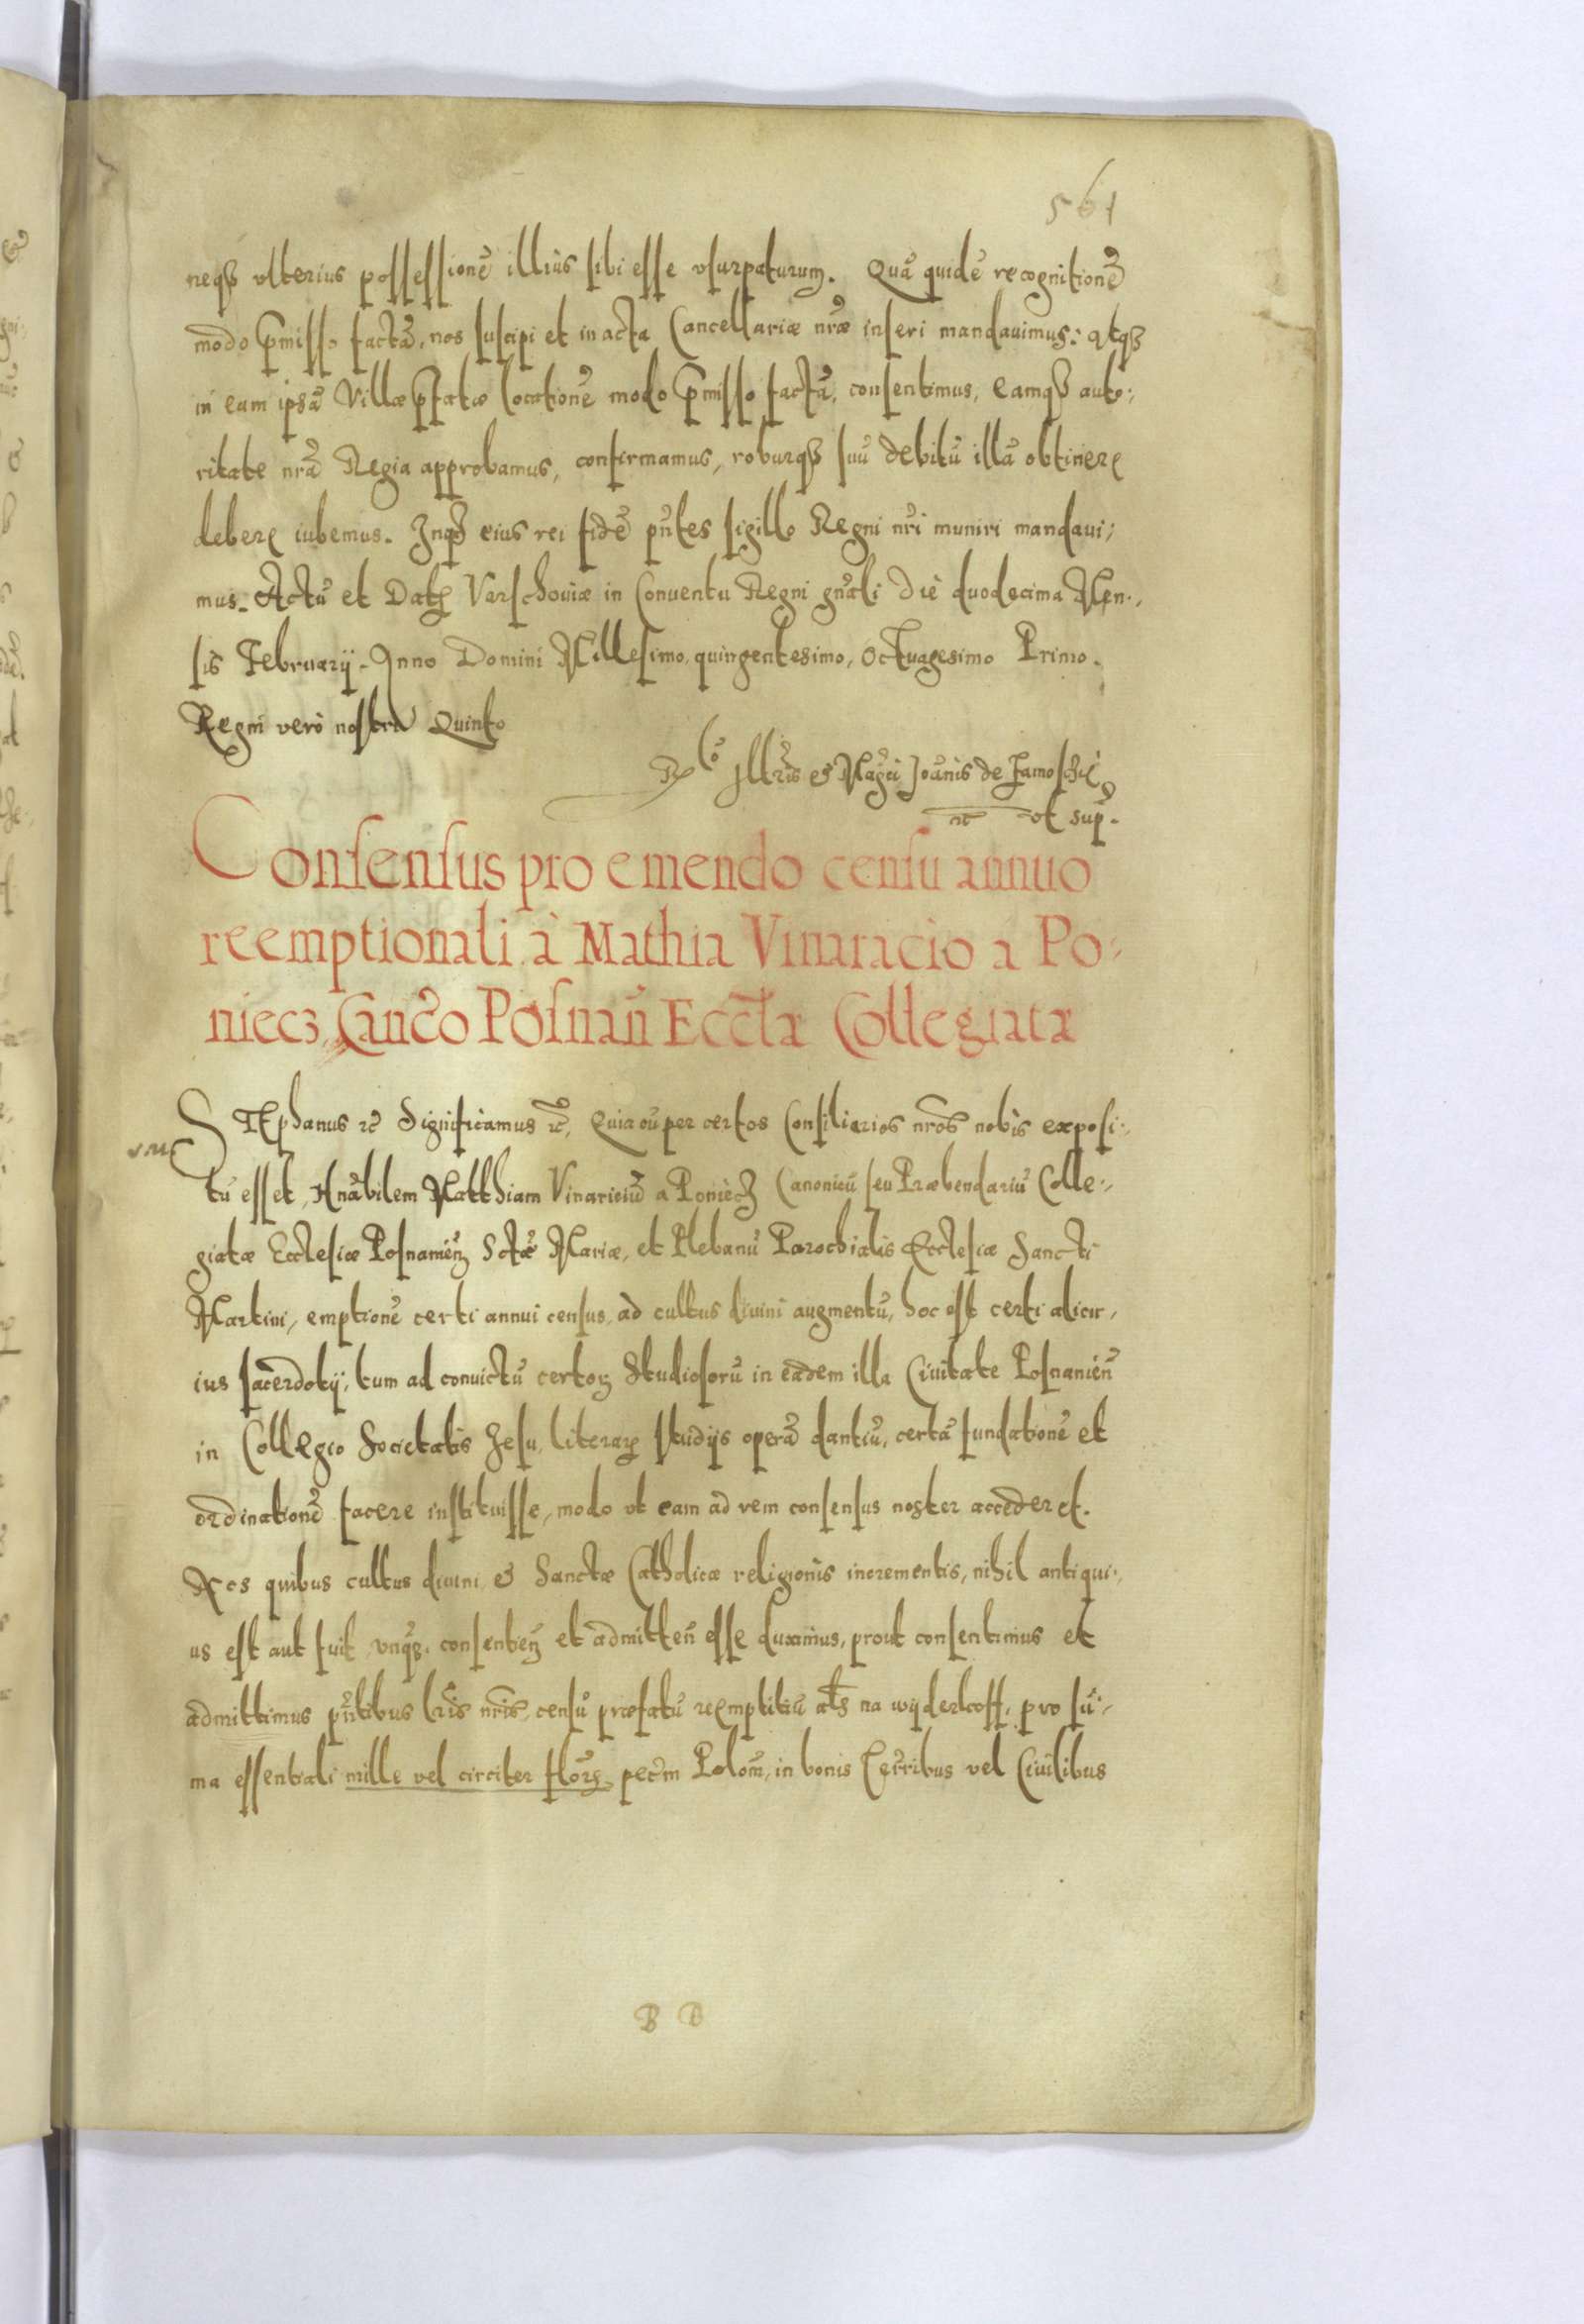 561
neqȝ vlterius possessionē illius sibi esse vsurpaturum. Quā quidē recognitionē
modo p̄misso factā, nos suscipi et in acta Cancellariæ nr̄æ inseri mandauimus: Atqȝ
in eam ipsā Villæ p̄fatæ locationē modo p̄misso factā, consentimus, eamqȝ auto:,
ritate nr̄a Regia approbamus, confirmamus, roburqȝ suū debitū illā obtinere
debere iubemus. Inqȝ eius rei fidē pn̄tes sigillo Regni nr̄i muniri mandaui:,
mus. Actū et Datꝝ Varschouiæ in Conuentu Regni gn̄ali Die duodecima Men:,
sis Februarij. Anno Domini Millesimo, quingentesimo, Octuagesimo Primo.
Regni verò nostri Quinto
Rlō Illr̄is & Magci Joānis de Zamoschcie
ut sup.
Consensus pro emendo censu annuo
reemptionali à Mathia Vinaracio a Po:,
niecȝ, Canc̄o Posnan̄ Eccl̄æ Collegiatæ
STEphanus ꝛc̄ Significamus ꝛc̄, Quia cū per certos Consiliarios nr̄os nobis exposi:,
tū esset, Hnābilem Matthiam Vinariciū a Poniecȝ Canonicū seu Præbendariū Colle:,
giatæ Ecclesiæ Posnanien̄ Sctǣ Mariæ, et Plebanū Parochialis Ecclesiæ Sancti
Martini, emptionē certi annui census, ad cultus diuini augmentū, hoc est certi alicu:,
ius sacerdotij, tum ad conuictū certoꝝ Studiosorū in eadem illa Ciuitate Posnanien̄
in Collegio Societatis Jesu, literaꝝ studijs operā dantiū, certā fundationē et
ordinationē facere instituisse, modo vt eam ad rem consensus noster accederet.
Nos quibus cultus diuini & Sanctæ Catholicæ religionis incrementis, nihil antiqui:,
us est aut fuit vnqȝ, consentien̄ et admitten̄ esse duximus, prout consentimus et
admittimus pn̄tibus lr̄is nr̄is, censū præfatū reemptitiū al̄s na wyderkoff, pro sū:,
ma essentiali mille vel circiter flor̄ꝝ pecūn Polon̄, in bonis Terr̄ibus vel Ciuilibus
B B